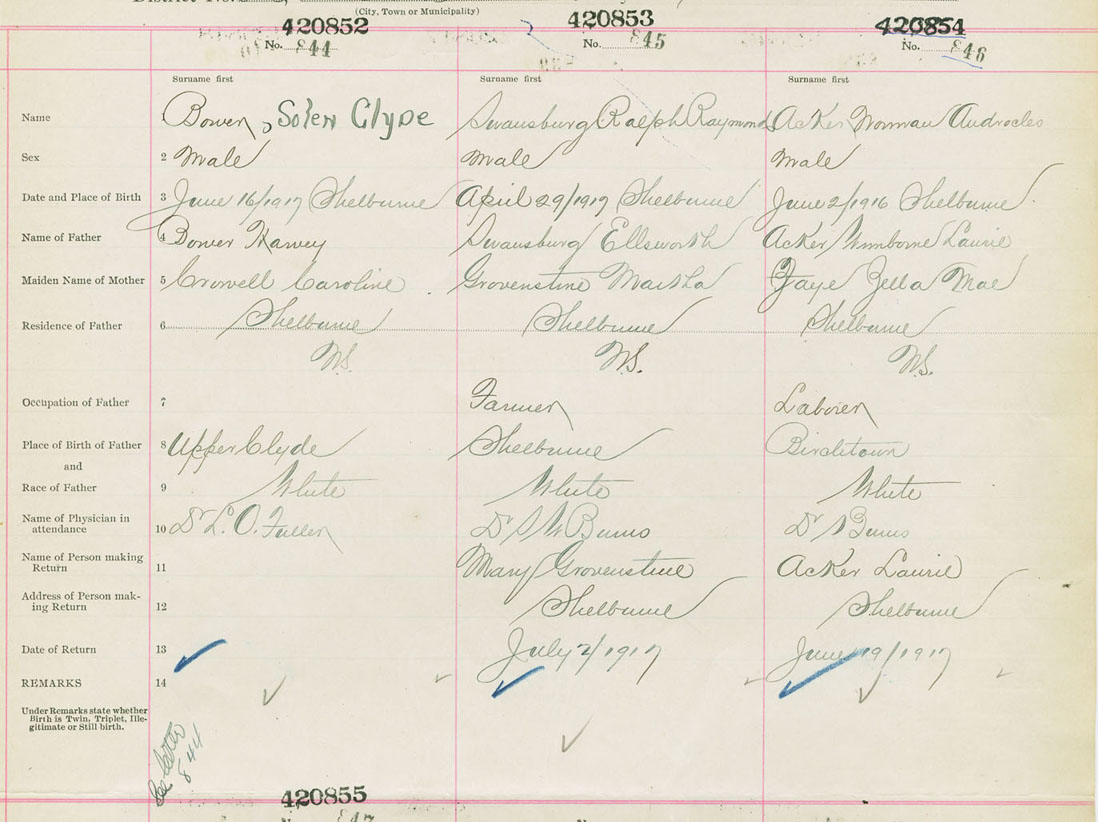 (City, Town or Municipality)
420852 420853 420854
No. 844 No. 845 No. 846
Surname first Surname first Surname first
Name Bower, Solen Clyde Swansburg Ralph Raymond Acker Norman Androcles
Sex 2 Male Male Male
Date and Place of Birth 3 June 16/1917 Shelburne April 29/1917 Shelburne June 2/1916 Shelburne
Name of Father 4 Bower Harvey Swansburg Ellsworth Acker Wimborne Laurie
Maiden Name of Mother 5 Crowell Caroline Grovenstine Martha Faye Zella Mae
Residence of Father 6 Shelburne Shelburne Shelburne
N.S. N.S. N.S.
Occupation of Father 7 Farmer Laborer
Place of Birth of Father 8 Upper Clyde Shelburne Birchtown
and
Race of Father 9 White White White
Name of Physician in
attendance 10 Dr L. O. Fuller Dr Burns Dr Burns
Name of Person making
Return 11 Mary Grovenstine Acker Laurie
Address of Person mak-
ing Return 12 Shelburne Shelburne
Date of Return 13 July 2/1917 June 19/1917
REMARKS 14
Under Remarks state whether
Birth is Twin, Triplet, Ille-
gitimate or Still birth.
See letter
844
420855
847